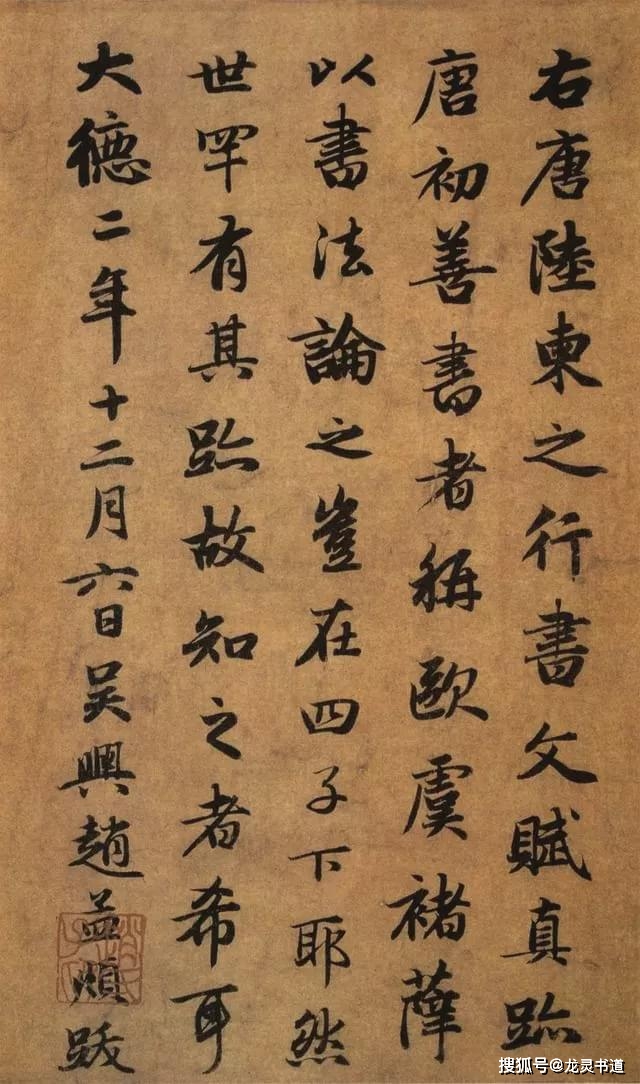 右唐陸柬之行書文賦真跡
唐初善書者稱歐虞褚薛
以書法論之豈在四子下耶然
世罕有其跡故知之者希耳
大德二年十二月六日吴興趙孟頫跋
搜狐号@龙灵书道